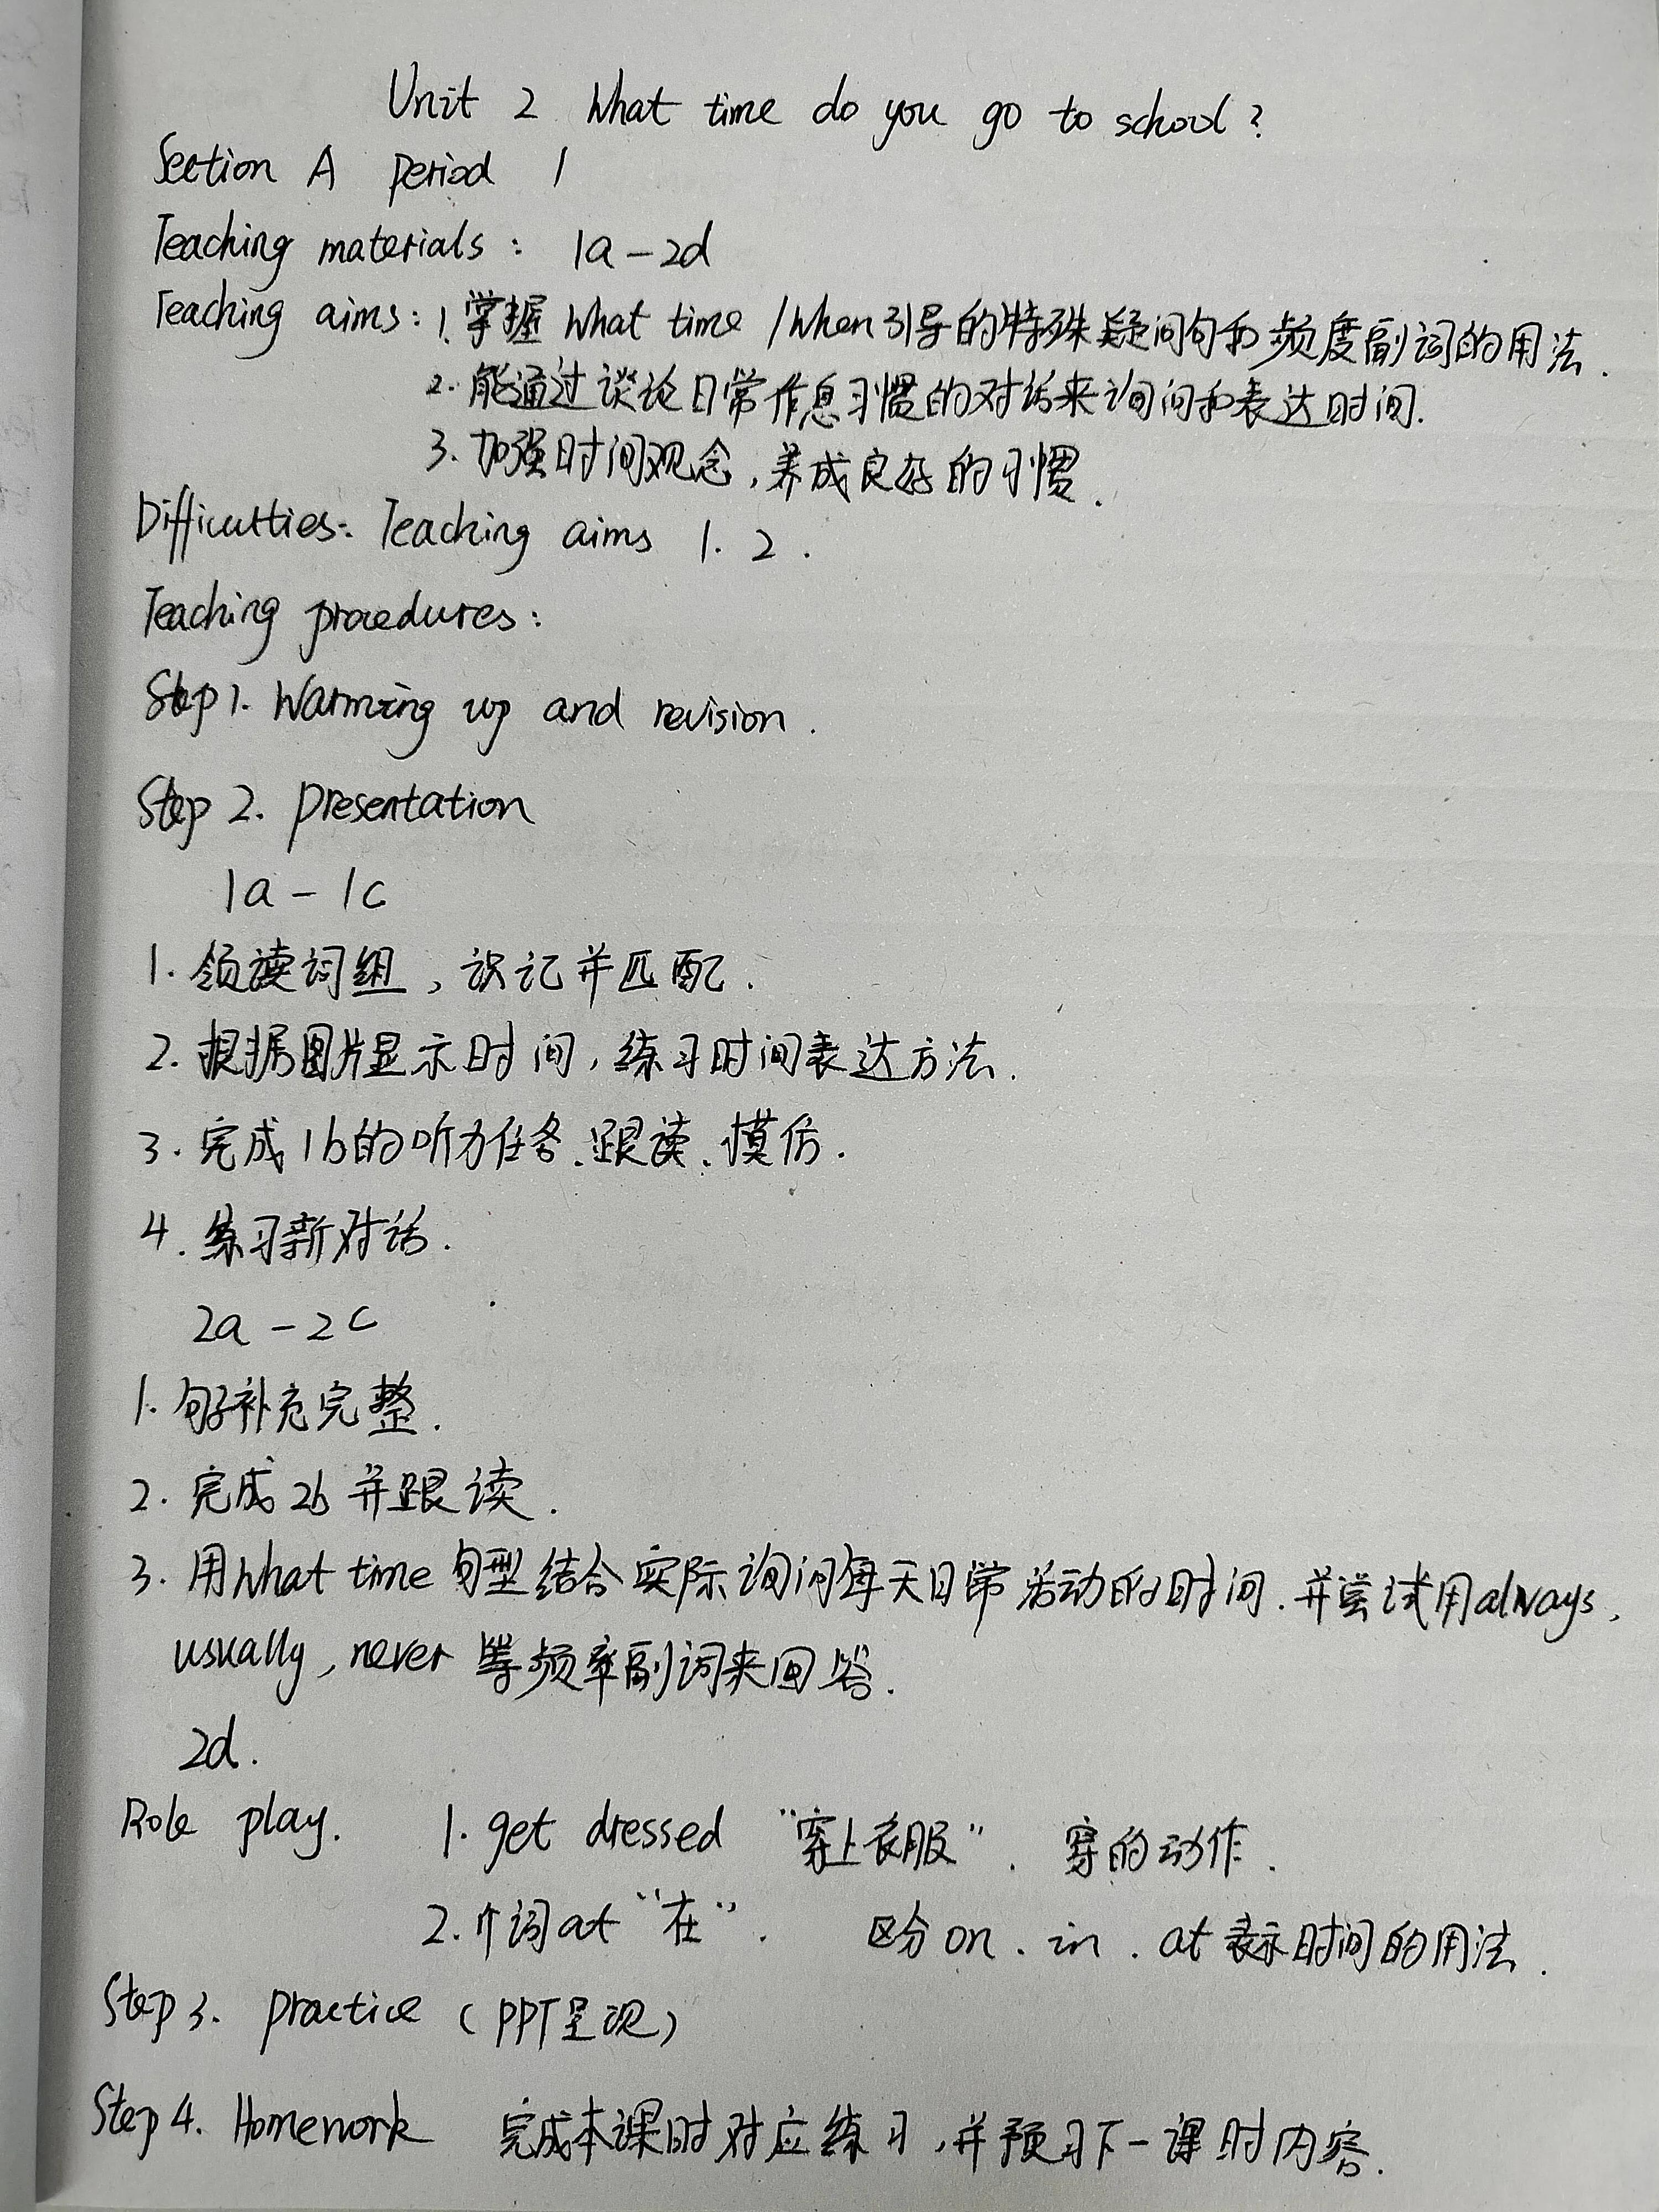 Unit 2 What time do you go to school?
Section A Period 1
Teaching materials: 1a-2d
Teaching aims: 1.掌握 What time /When引导的特殊疑问句和频度副词的用法.
2.能通过谈论日常作息习惯的对话来询问和表达时间.
3.加强时间观念,养成良好的习惯.
Difficulties: Teaching aims 1. 2.
Teaching procedures:
Step 1. Warming up and revision.
Step 2. Presentation
1a-1c
1.领读词组,识记并匹配.
2.根据图片显示时间,练习时间表达方法.
3.完成1b的听力任务、跟读、模仿.
4.练习新对话.
2a-2c
1.句子补充完整.
2.完成2b并跟读.
3.用What time句型结合实际询问每天日常活动的时间.并尝试用always,
usually, never 等频率副词来回答.
2d.
Role play. 1. get dressed “穿上衣服”. 穿的动作.
2.介词at “在”. 区分on.in.at表示时间的用法.
Step 3. Practice (PPT呈现)
Step 4. Homework 完成本课时对应练习,并预习下一课时内容.